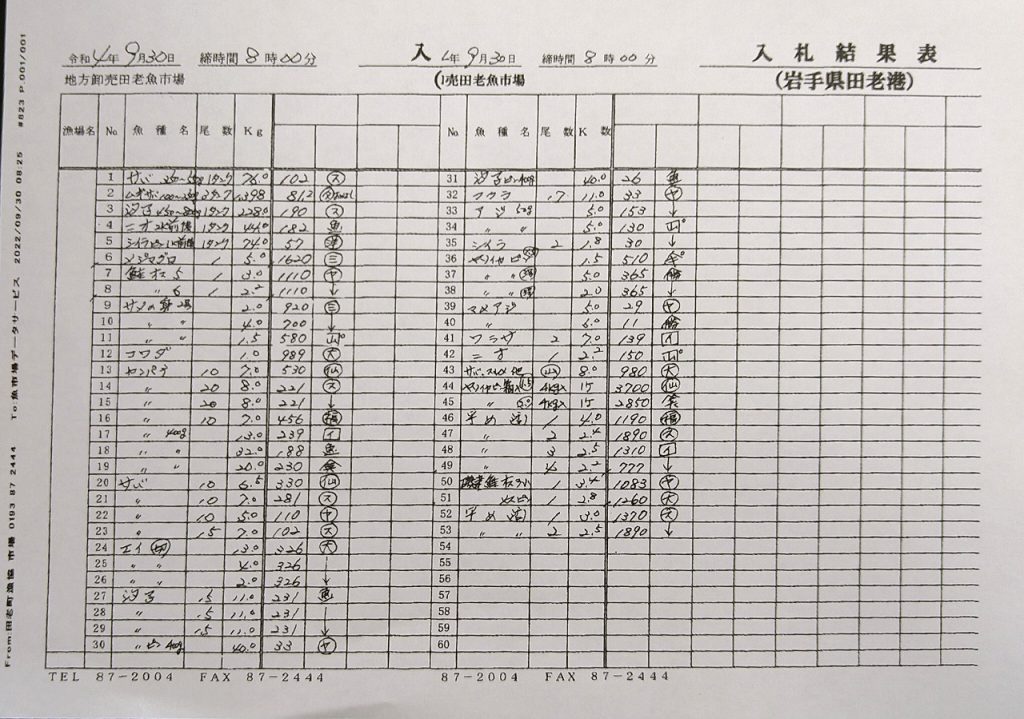 From:田老町漁協 市場 0193 87 2444 To:魚市場データサービス 2022/09/30 08:25 #823 P.001/001
令和4年9月30日 締時間8時00分 入
地方卸売田老魚市場 (
年9月30日 締時間8時00分 入札結果表
売田老魚市場 (岩手県田老港)
漁場名 No 魚種名 尾数 Kg
No 魚種名 尾数 K 数
1 サバ 76.0 102 ス
2 398 81.2
3 汐子 128.0 190 ス
4 二才 2K前後 1タンク 44.0 182 魚
5 シイラ 1タンク 74.0 57
6 メジマグロ 1 5.0 1620 三
7 鮭オス 5 1 3.0 1110 ヤ
8 〃 6 1 2.2 1110 ↓
9 サメの身 2.0 920 三
10 〃 〃 4.0 700 ↓
11 〃 〃 1.5 580 山
12 コワダ 1.0 989 大
13 カンパチ 10 7.0 530 仙
14 〃 20 8.0 221 ス
15 〃 20 8.0 221 ↓
16 〃 10 7.0 456
17 〃 400g 13.0 239 イ
18 〃 〃 32.0 188 魚
19 〃 〃 20.0 230
20 サバ 10 6.5 330 仙
21 〃 10 7.0 281 ス
22 〃 10 5.0 110 ヤ
23 〃 15 7.0 102 ス
24 エイ 切 13.0 326 大
25 〃 〃 4.0 326
26 〃 〃 2.0 326 ↓
27 汐子 15 11.0 231 魚
28 〃 15 11.0 231
29 〃 15 11.0 231 ↓
30 〃 40.0 33 ヤ
31 汐子 40.0 26 魚
32 17 11.0 33 ヤ
33 アジ 50g 5.0 153 ↓
34 〃 〃 5.0 130 山
35 シイラ 2 1.8 30 ↓
36 ヤリイカ 1.5 510
37 〃 〃 5.0 365
38 〃 〃 2.0 365 ↓
39 マメアジ 5.0 29 ヤ
40 〃 6.0 11
41 ワラサ 2 7.0 139 イ
42 二才 1 2.2 150 山
43 8.0 980 大
44 3700 仙
45 〃 2850
46 平め 活 1 4.0 1190
47 〃 2 2.4 1890 ス
48 〃 3 2.5 1310 イ
49 〃 4 2.2 777 ↓
50 1 3.4 1083 ヤ
51 1 2.8 1260 大
52 平め 活 1 3.0 1370 ス
53 〃 〃 2 2.5 1890 ↓
54
55
56
57
58
59
60
TEL 87-2004 FAX 87-2444
87-2004 FAX 87-2444